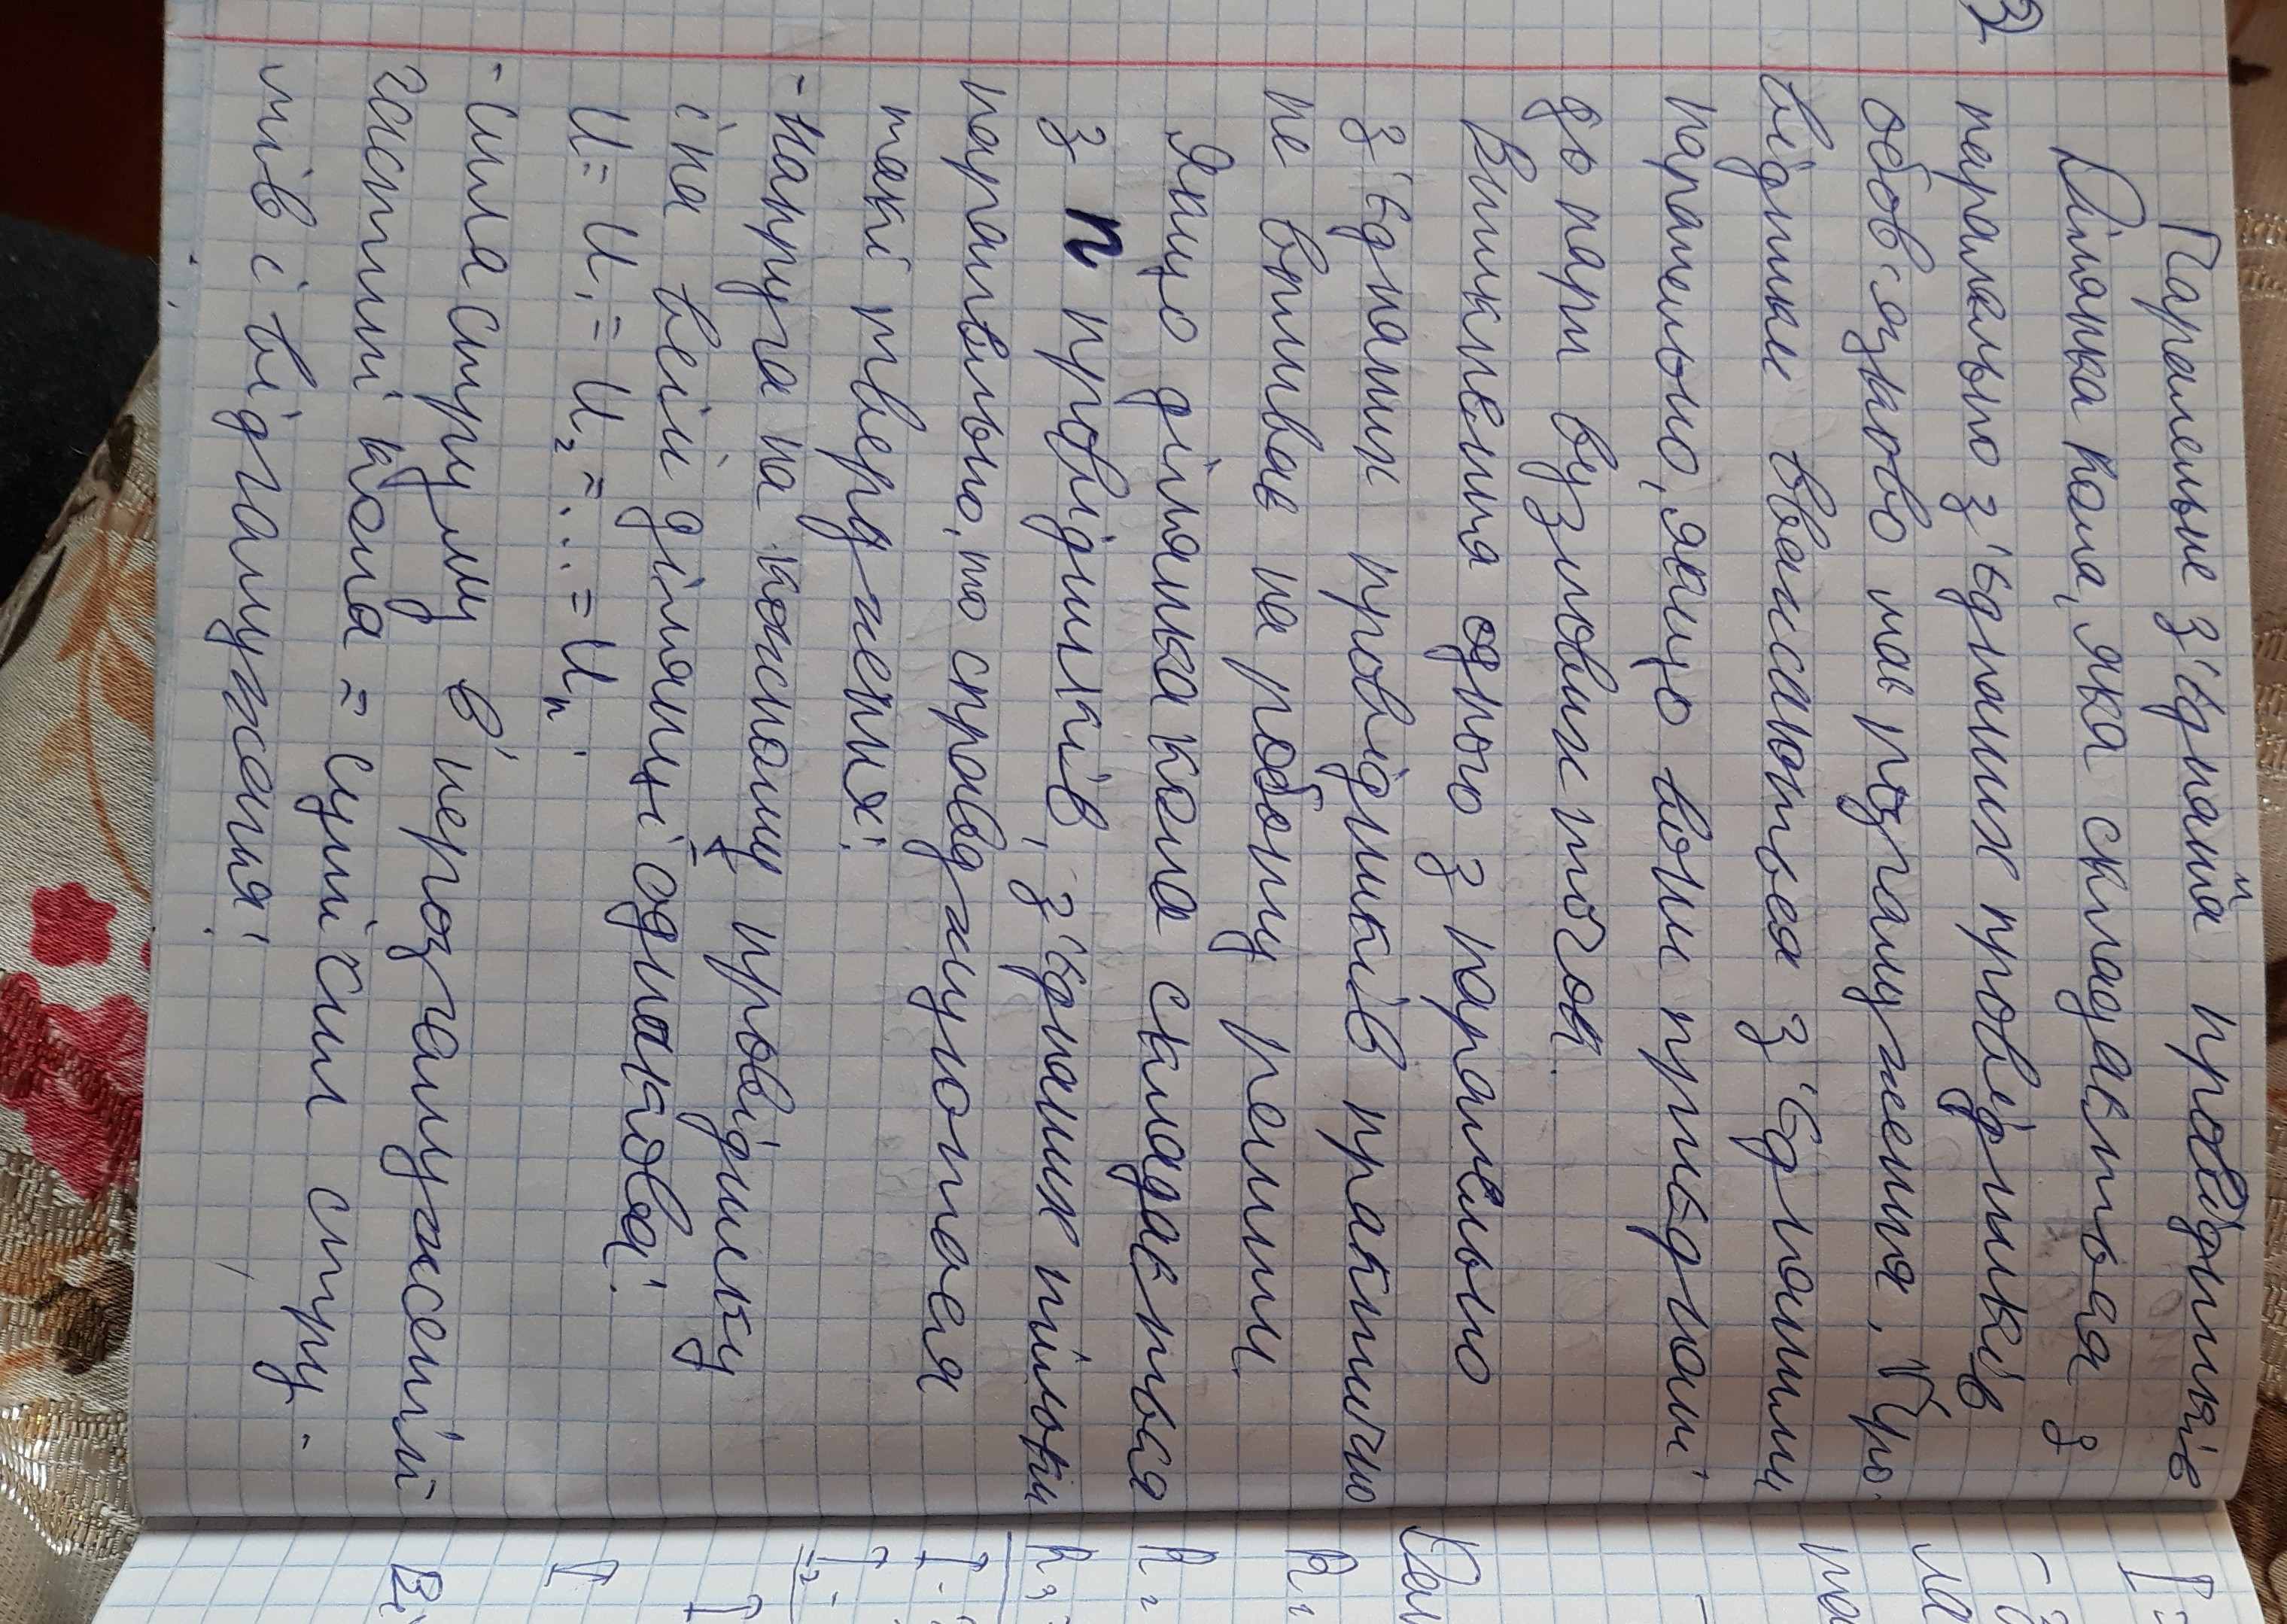 Паралельне з'єднання провідників
Ділянка кола, яка складається з
паралельно з'єднаних провідників
обов'язково має розгалуження. Про-
відники вважаються з'єднаними
паралельно, якщо вони приєднані
до пари вузлових точок.
Вимкнення одного з паралельно
з'єднаних провідників практично
не впливає на роботу решти.
Якщо ділянка кола складається
з n провідників, з'єднаних тільки
паралельно, то справджуються
такі твердження:
- напруга на кожному провіднику
і на всій ділянці однакова:
U = U₁ = U₂ = ... = Uₙ.
- сила струму в нерозгалуженій
частині кола = сумі сил стру-
мів і відгалуження: